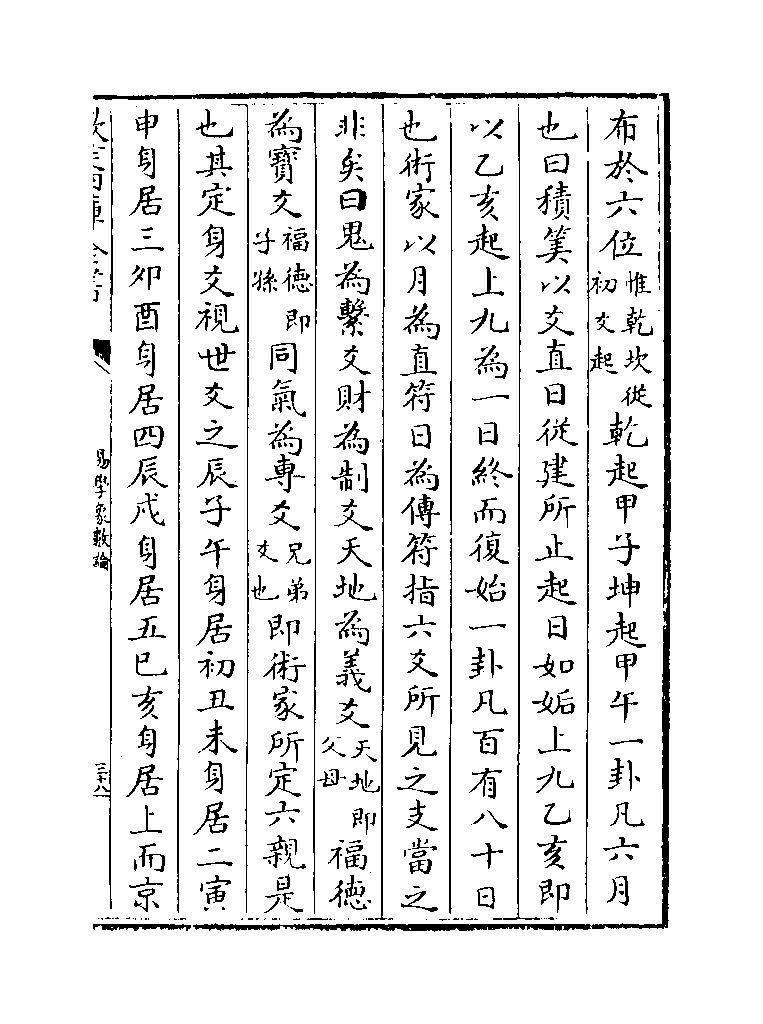 布於六位惟乾坎從初爻起乾起甲子坤起甲午一卦凡六月
也曰積筭以爻直日從建所止起日如姤上九乙亥即
以乙亥起上九為一日終而復始一卦凡百有八十日
也術家以月為直符日為傳符指六爻所見之支當之
非矣曰鬼為繫爻財為制爻天地為義爻天地即父母福徳
為寶爻福徳即子孫同氣為專爻兄弟爻也即術家所定六親是
也其定身爻視世爻之辰子午身居初丑未身居二寅
申身居三夘酉身居四辰戍身居五巳亥身居上而京
易學象數論